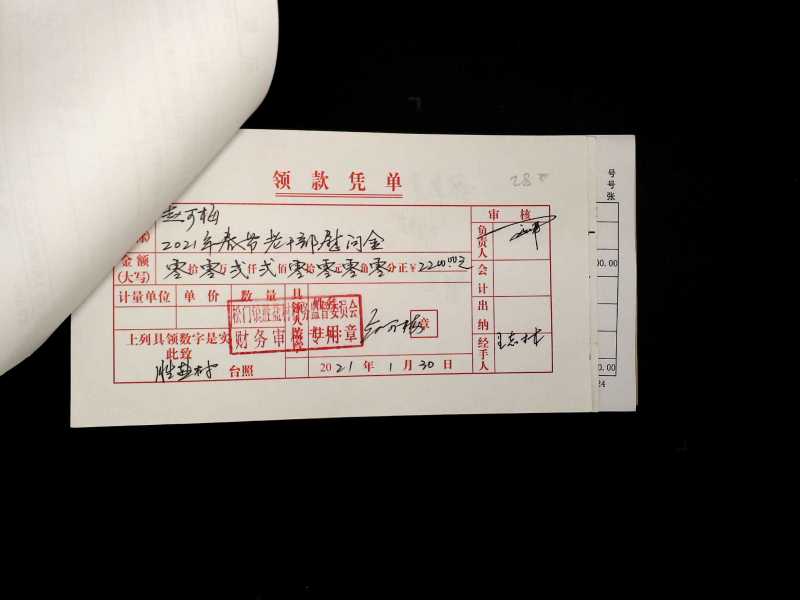 领款凭单
28
号
号
张
赵可梅
审核
2021年春节老干部慰问金
负责人
金额(大写) 零拾零万弍仟弍佰零拾零元零角零分正¥2200.00元
会计
计量单位 单价 数量
出纳
松门镇胜益村村务监督委员会
财务审核专用章
章
上列具领数字是实
此致
胜益村 台照
2021年1月30日
经手人
王志林
00.00
0.00
24